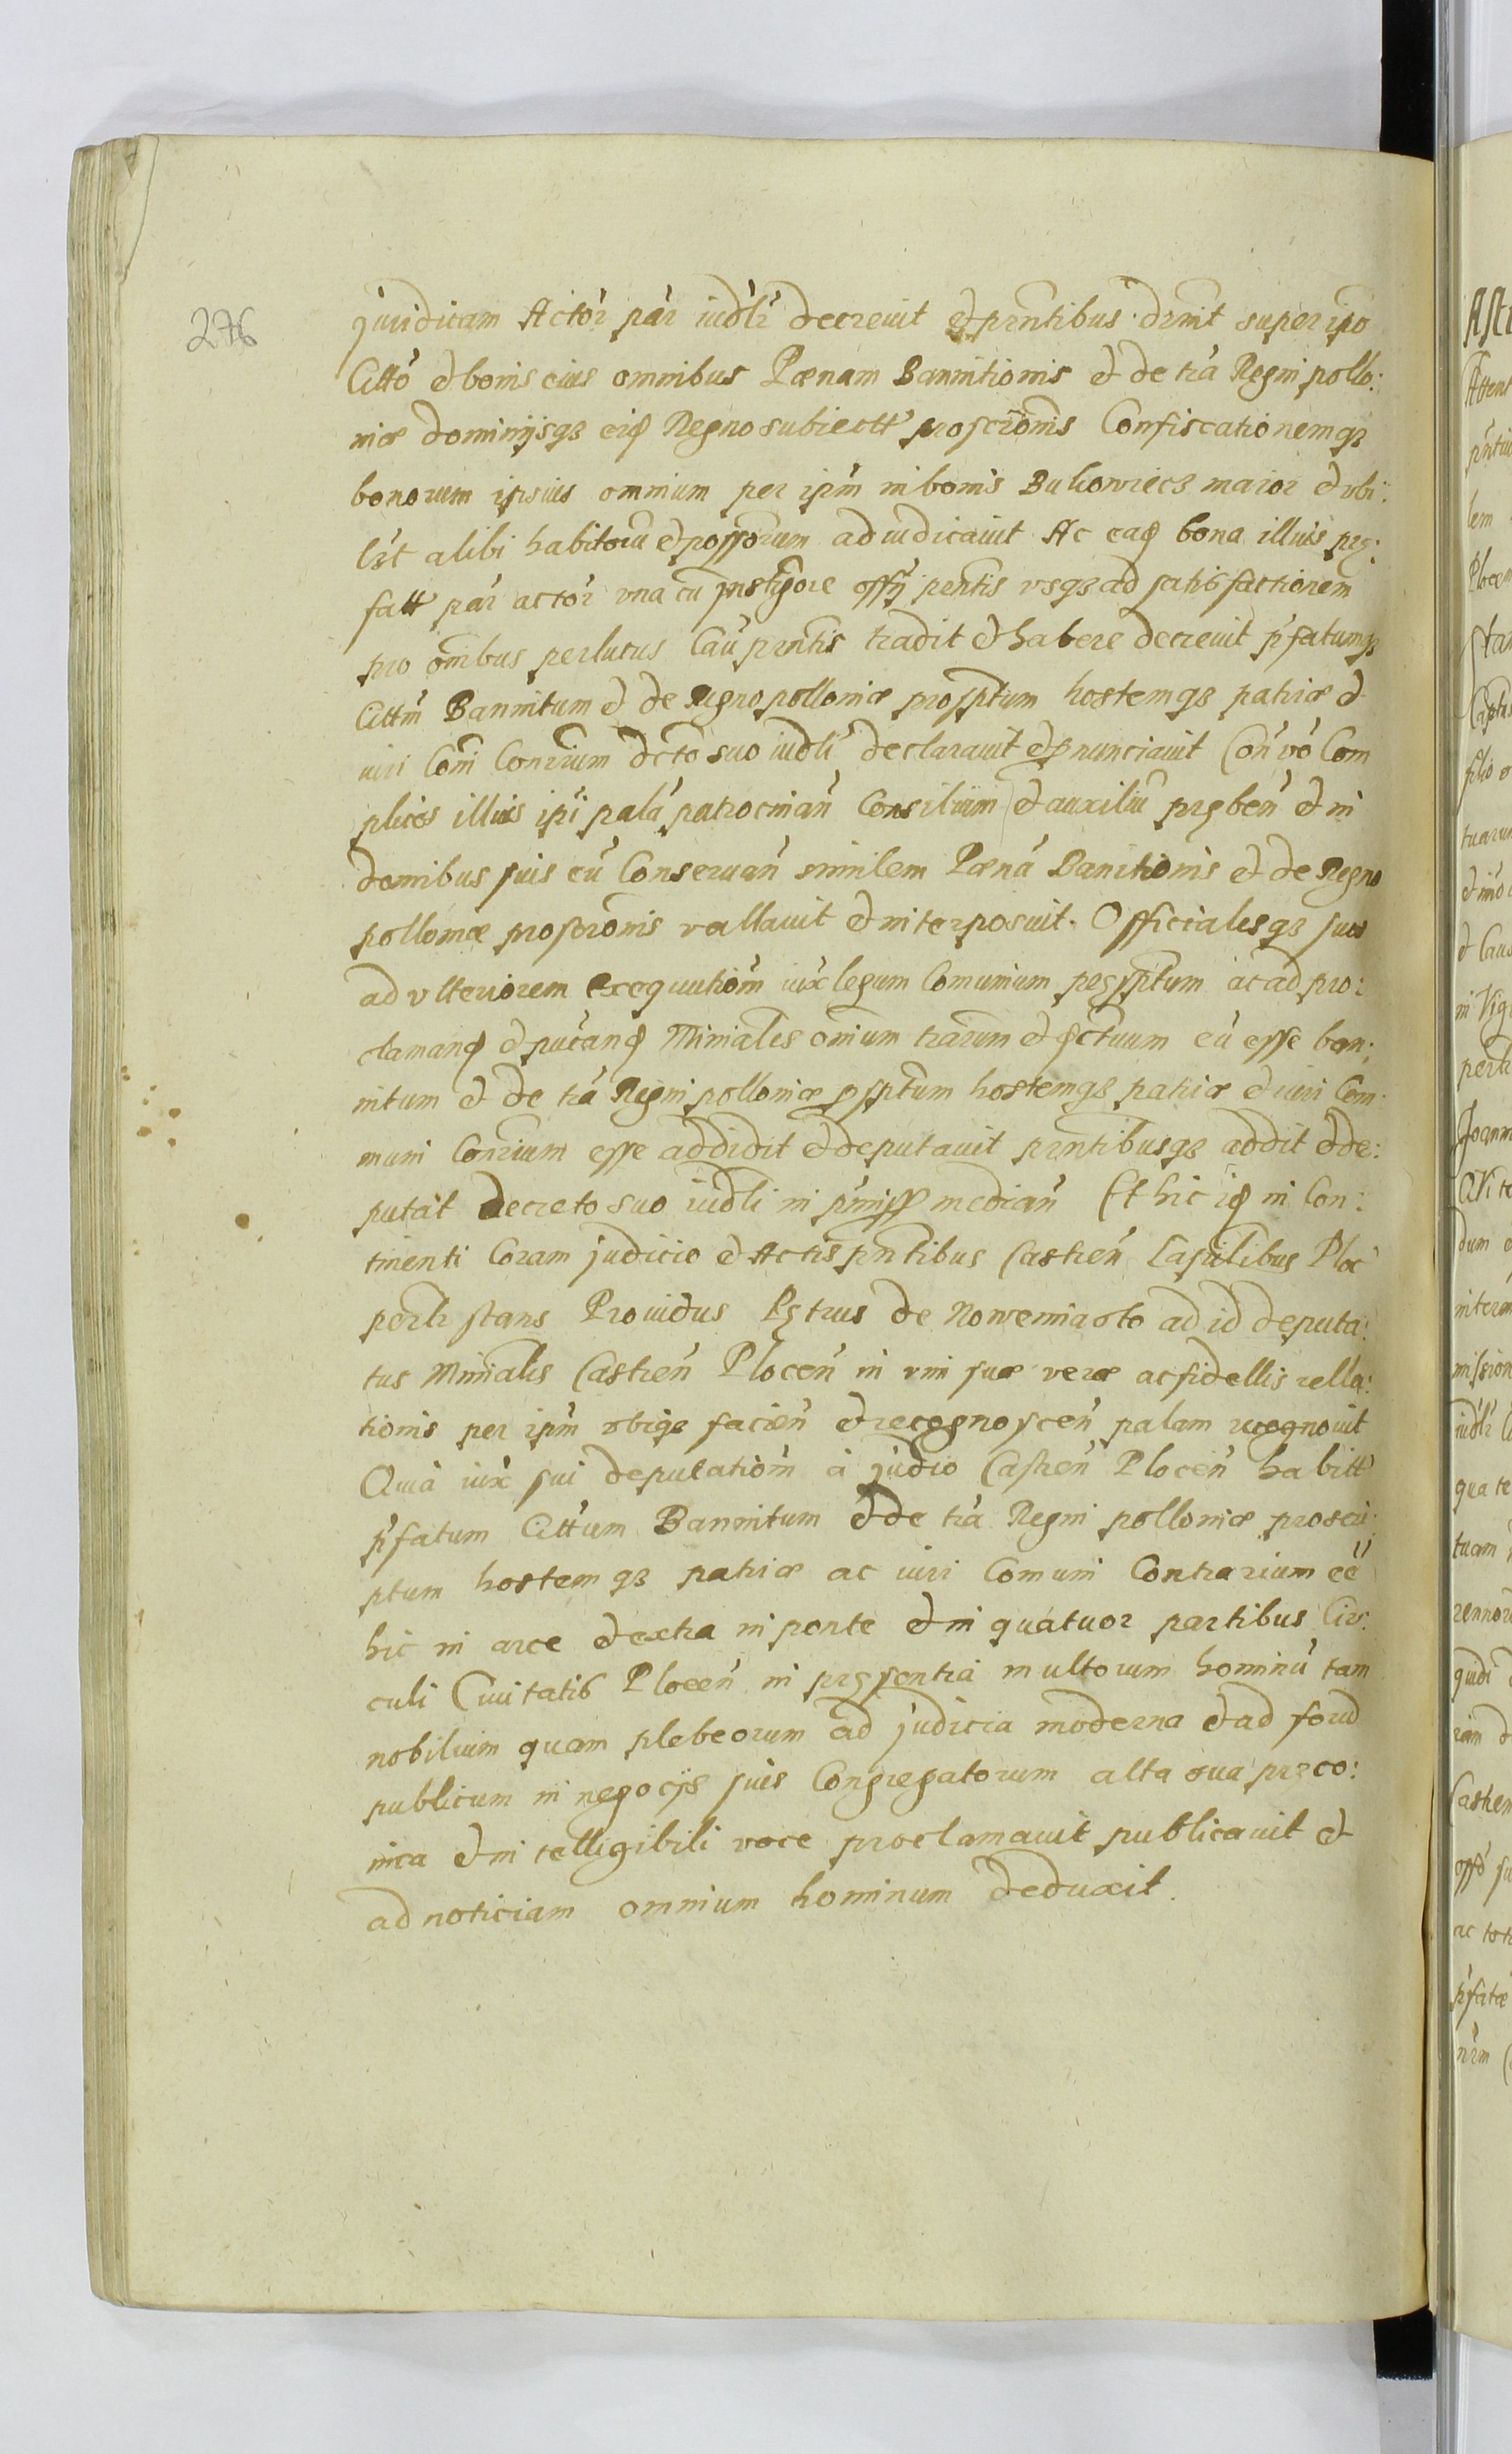 276
juridicam Actor par iudlr decreuit et prntibus drnit super ipo
Citto et bonis eius omnibus Pœnam Bannitionis et de tra Regni pollo:
niæ dominijsqз eiq Regno subiectt proscrionis Confiscationemqз
bonorum ipsius omnium per ipm in bonis Bukowiecz maior et vbi:
lst alibi habitoru et possorum adiudicauit Ac eaq bona illius prę:
fatt par actor vna cu Instigore offy prntis vsqз ad satisfactionem
pro omibus perlucris Cau prntis tradit et habere decreuit pfatumqз
Cittm Bannitum et de Regno polloniæ prosptum hostemqз patriæ et
iuri Comi Conrium dcto suo iudli declarauit et pnunciauit Con vo Com
plices illius ipi pala patrocinan Consilium et auxiliu pręben et in
domibus suis eu Conseruan similem Pœna Banitionis et de Regno
polloniæ proscronis vallauit et interposuit. Officialesqз suos
ad vlteriorem exequutiom iux legum Comunium pręsptum ac ad pro:
clamanq et pucanq Minialis omium trarum et qctuum eu esse ban:
nitum et de tra Regni polloniæ psptum hostemqз patriæ et iuri Com
muni Conrium esse addidit et deputauit prntibusqз addit et de:
putat decreto suo iudli in pmiss median Et hic iq in Con:
tinenti Coram judicio et Actis pntibus Castren Capitlibus Ploc
perlr stans Prouidus Petrus de Nowemiasto ad id deputa:
tus Minialis Castren Plocen in vim suæ veræ ac fidellis rella:
tionis per ipm obiqз facien et recognoscen palam recognouit
Quia iux sui deputatiom a judio Castren Plocen habitt
pfatum Cittum Bannitum et de tra Regni polloniæ proscri:
ptum hostemqз patriæ ac iuri Comuni Contrarium ee
hic in arce et extra in ponte et in quatuor partibus Cir:
culi Ciuitatis Plocen in pręsentia multorum hominu tam
nobilium quam plebeorum ad judicia moderna et ad forud
publicum in negocijs suis Congregatorum alta sua pręco:
nica et intelligibili voce proclamauit publicauit et
ad noticiam omnium hominum deduxit.